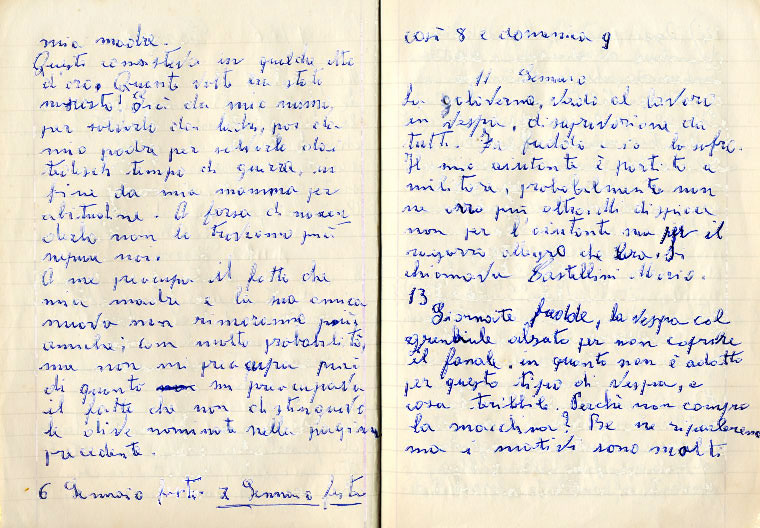 mia madre.
Questi consisteva in qualche etto
d'oro. Quante volte era stato
nascosto! Già da mia nonna,
per salvarlo dai ladri, poi da
mio padre per salvarlo dai
tedeschi tempo di guerra, in
fine da mia mamma per
abitudine. A forza di nascon
derlo non lo trovarono più
nepure noi.
A me preocupa il fatto che
mia madre e la sua amica
nuova non rimaranno più
amiche; con molto probabilità,
ma non mi preocupa più
di quanto mi preocupava
il fatto che non distinguevo
le olive nominate nella pagina
precedente.
6 Gennaio festa 7 Gennaio festa
così 8 e domenica 9
11 Gennaio
La galiverna, vado al lavoro
in vespa, disaprovazione da
tutti. Fa freddo e io lo sofro.
Il mio aiutante è partito a
militare, probabilmente non
ne avrò più altri
non per l'aiutante ma per il
ragazzo allegro che era. Si
chiamava Castellini Mario.
13
Giornate fredde, la vespa col
grembiule alzato per non coprire
il fanale, in quanto non è adatto
per questo tipo di vespa, e
cosa teribbile. Perchè non compro
la macchina? Be ne riparleremo
ma i motivi sono molti